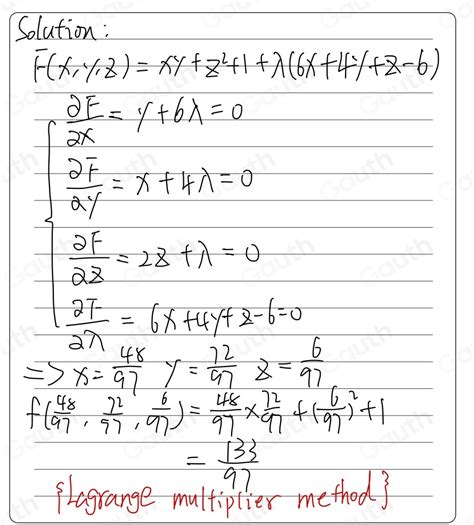 Solution:
F(x,y,z) = xy+z²+1+λ(6x+4y+z-6)
∂F/∂x = y+6λ=0
∂F/∂y = x+4λ=0
∂F/∂z = 2z+λ=0
∂F/∂λ = 6x+4y+z-6=0
=> x=48/97 y=72/97 z=6/97
f(48/97, 72/97, 6/97) = 48/97×72/97+(6/97)²+1
= 133/97
{Lagrange multiplier method}